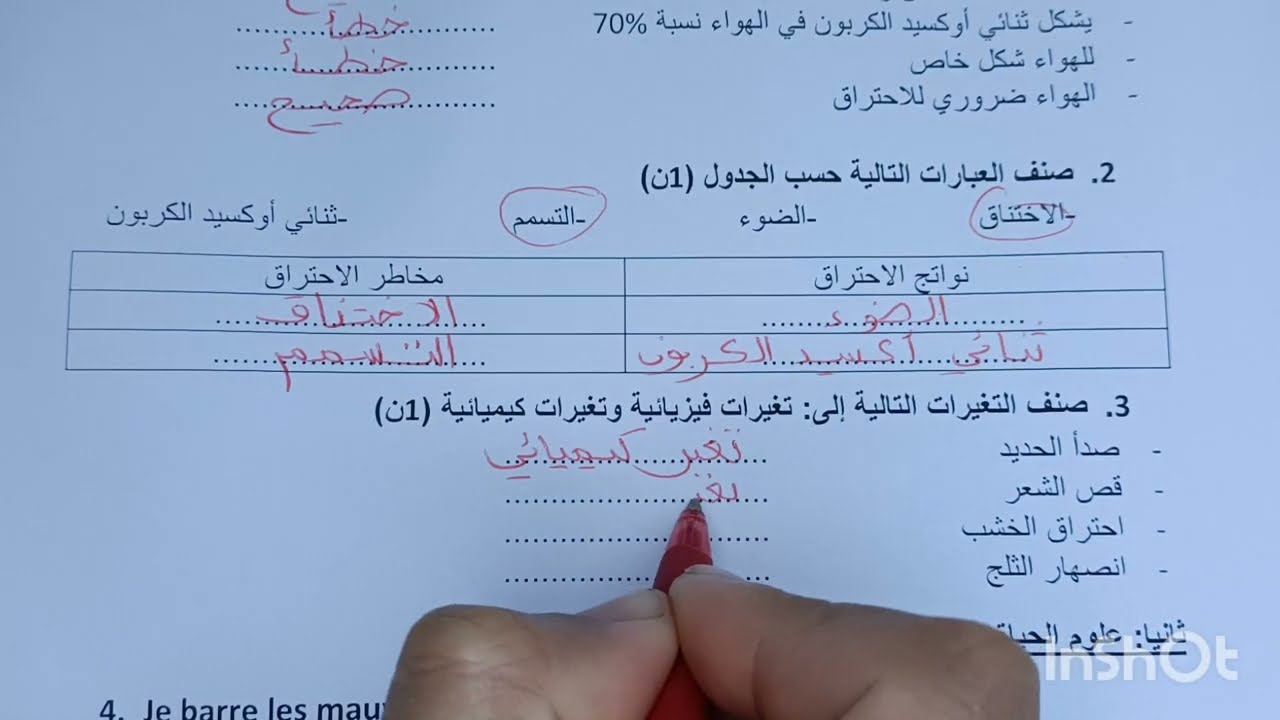 - يشكل ثنائي أوكسيد الكربون في الهواء نسبة 70% خطأ
- للهواء شكل خاص خطأ
- الهواء ضروري للاحتراق صحيح
2. صنف العبارات التالية حسب الجدول (1ن)
-الاختناق -الضوء -التسمم -ثنائي أوكسيد الكربون
نواتج الاحتراق مخاطر الاحتراق
الضوء الاختناق
ثنائي أكسيد الكربون التسمم
3. صنف التغيرات التالية إلى: تغيرات فيزيائية وتغيرات كيميائية (1ن)
- صدأ الحديد تغير كيميائي
- قص الشعر
- احتراق الخشب
- انصهار الثلج
ثانيا: علوم
4. Je barre les
InshOt